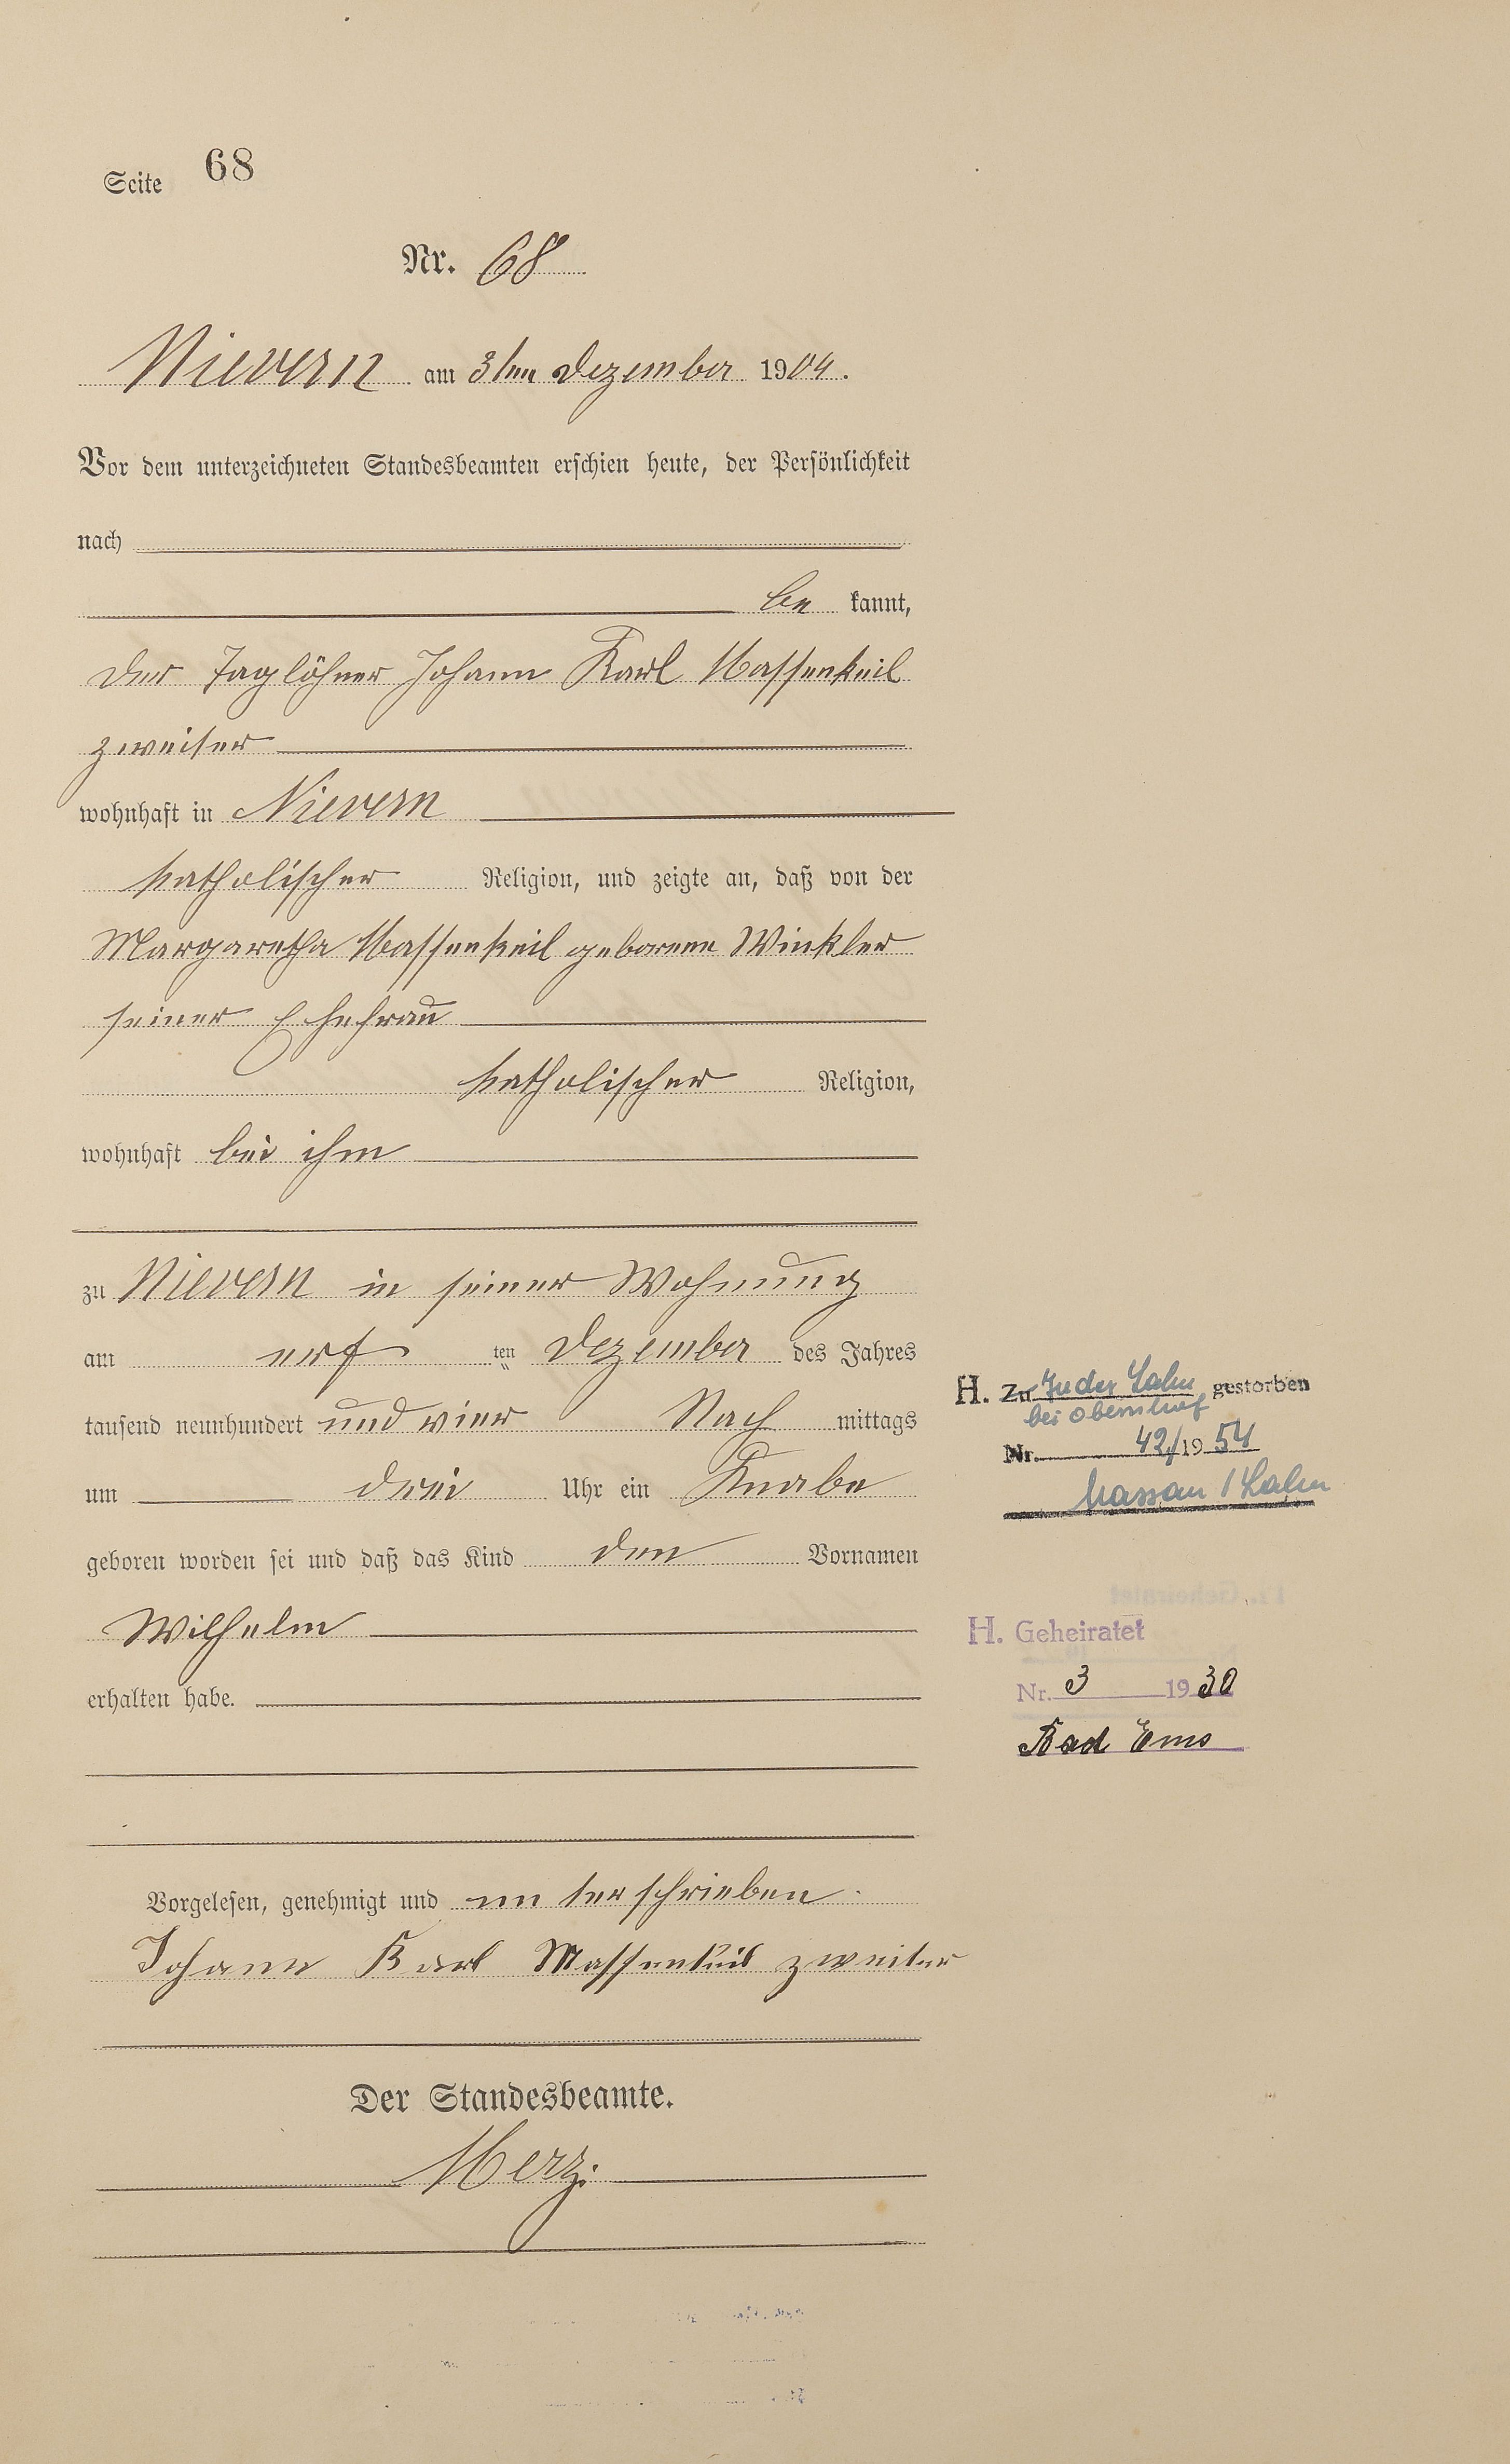 Seite 68
Nr. 68
Nievern am 3ten Dezember 1904.
Vor dem unterzeichneten Standesbeamten erschien heute, der Persönlichkeit
nach
be kannt,
der Taglöhner Johann Karl Massenkeil
zweiter
wohnhaft in Nievern
katholischer Religion, und zeigte an, daß von der
Margaretha Massenkeil geborene Winkler
seiner Ehefrau
katholischer Religion,
wohnhaft bei ihm
zu Nievern in seiner Wohnung
am ersten Dezember des Jahres
tausend neunhundert und vier Nach mittags
um drei Uhr ein Knabe
geboren worden sei und daß das Kind den Vornamen
Wilhelm
erhalten habe.
Vorgelesen, genehmigt und unterschrieben.
Johann Karl Massenkeil zweiter
Der Standesbeamte.
Merz.
H. Zu In der Lahn gestorben
bei Obernhof
Nr. 42/1954
Nassau / Lahn
H. Geheiratet
Nr. 3 1930
Bad Ems